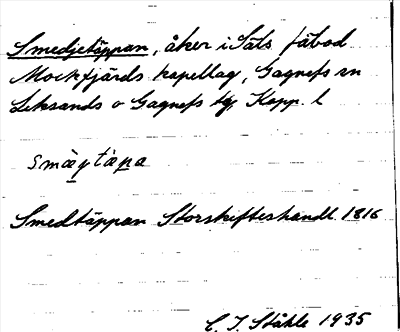 Smedjetäppan, åker i Säts fäbod
Mockfjärds kapellag, Gagnefs sn
Leksands o Gagnefs tg Kopp. l
smæ̀ytæ̀pa
Smedtäppan Storskifteshandl 1816
C. I. Ståhle 1935